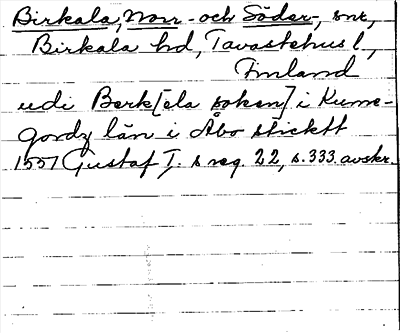 Birkala, Norr- och Söder-, snr,
Birkala hd, Tavastehus l.,
Finland
udi Berk[ela soken] i Kume-
gordz län i Åbo sticktt
1557 Gustaf I:s reg. 22, s. 333 avskr.